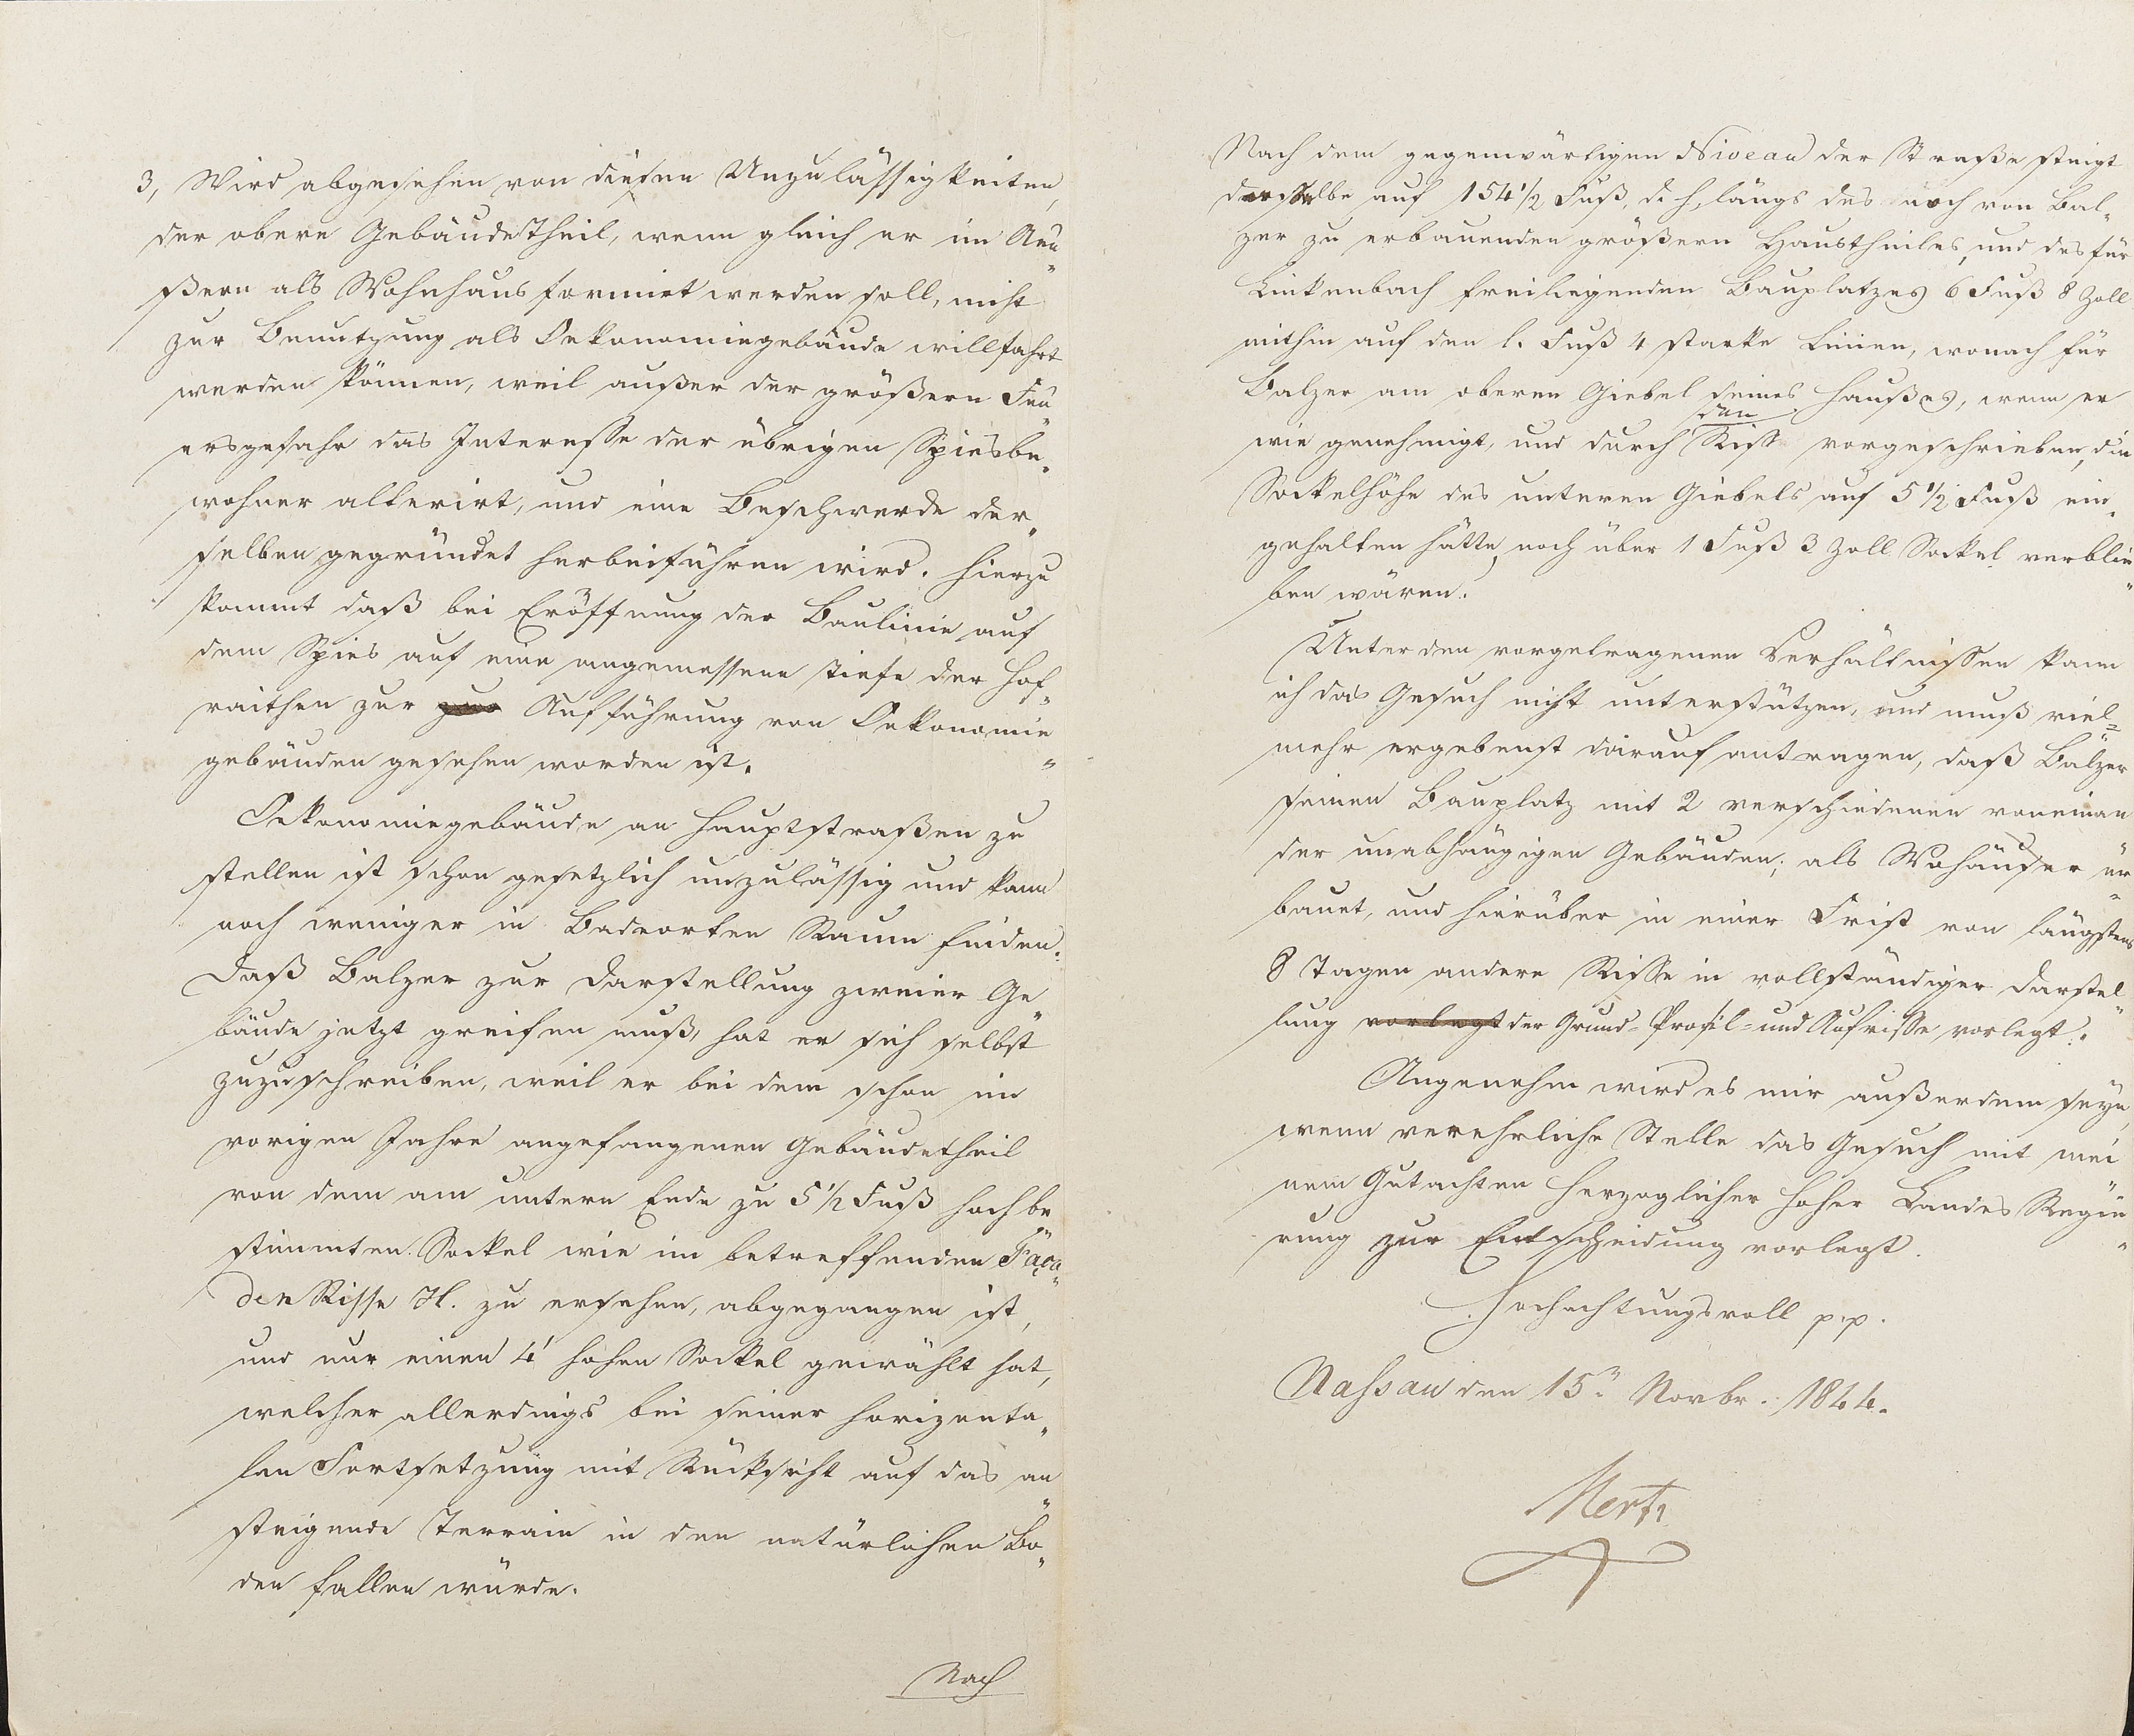 3, Wird abgesehen von diesen Unzulässigkeiten,
der obere Gebäudetheil, wenn gleich er im Aeu„
ßern als Wohnhaus formirt werden soll, nicht
zur Benutzung als Oekonomiegebäude willfahrt
werden können, weil außer der größern Feu„
ersgefahr das Interesse der übrigen Spiesbe„
wohner alterirt, und eine Beschwerde der„
selben gegründet herbeiführen wird. Hierzu
kommt daß bei Eröffnung der Baulinie auf
dem Spies auf eine angemessene Tiefe der Hof„
raithen zur Aufführung von Oekonomie„
gebäuden gesehen worden ist.
Oekonomiegebäude an Hauptstraßen zu
stellen ist schon gesetzlich unzulässig und kann
noch weniger in Badeorten Raum finden.
Daß Balzer zur Darstellung zweier Ge„
bäude jetzt greifen muß, hat er sich selbst
zuzuschreiben, weil er bei dem schon im
vorigen Jahre angefangenen Gebäudetheil
von dem am untern Ende zu 5 1/2 Fuß hoch be„
stimmten Sockel wie im betreffenden Faça„
den Risse H. zu ersehen, abgegangen ist,
und nur einen 4' hohen Sockel gewählt hat,
welcher allerdings bei seiner horizonta„
len Fortsetzung mit Rücksicht auf das an„
steigende Terrain in den natürlichen Bo„
den fallen würde.
Nach
Nach dem gegenwärtigen Niveau der Straße steigt
dasselbe auf 154 1/2 Fuß, d. h. längs des noch von Bal„
zer zu erbauenden größern Haustheiles, und des für
Linkenbach freiliegenden Bauplatzes 6 Fuß 8 Zoll
mithin auf den l. Fuß 4 starke Linien, wonach für
Balzer am oberen Giebel seines Haußes, wenn er
wie genehmigt, und durch den Riss vorgeschrieben, die
Sockelhöhe des unteren Giebels auf 5 1/2 Fuß ein„
gehalten hätte, noch über 1 Fuß 3 Zoll Sockel verblie„
ben wären.
Unter den vorgetragenen Verhältnissen kann
ich das Gesuch nicht unterstützen, und muß viel„
mehr ergebenst darauf antragen, daß Balzer
seinen Bauplatz mit 2 verschiedenen voneinan„
der unabhängigen Gebäuden, als Wohäuser er„
bauet, und hierüber in einer Frist von längstens
8 Tagen andere Risse in vollständiger Darstel„
lung vorlegt der Grund- Profil- und Aufrisse vorlegt.
Angenehm wird es mir außerdem seyn,
wenn verehrliche Stelle das Gesuch mit mei„
nem Gutachten Herzoglicher hoher Landes Regie„
rung zur Entscheidung vorlegt.
Hochachtungsvoll p.p.
Nassau den 15n Novbr. 1844.
Mertz